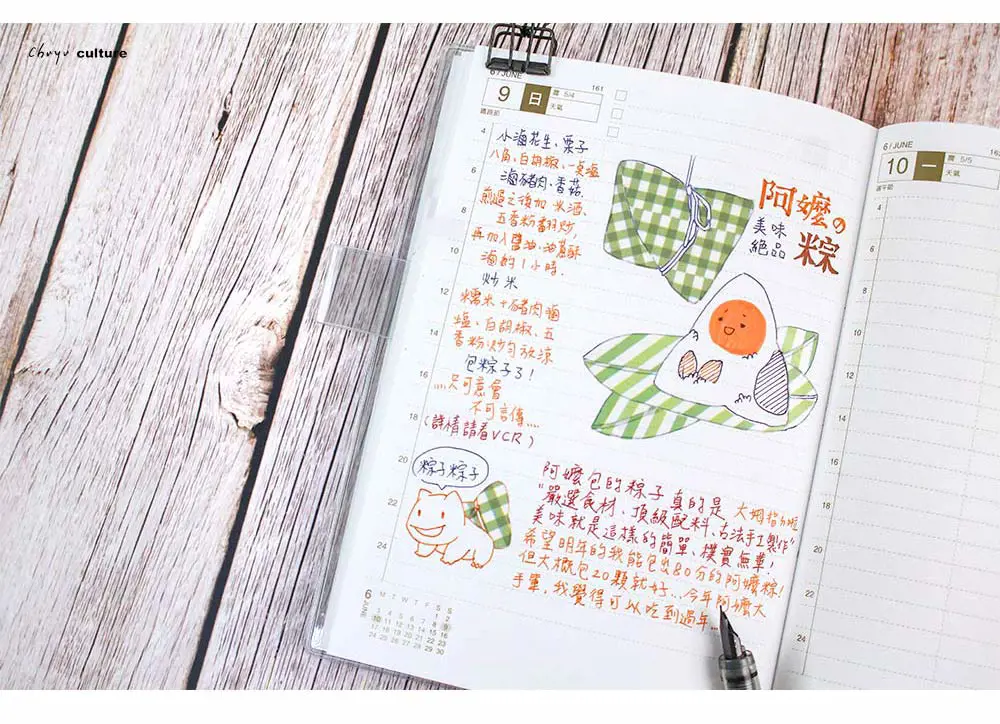 Chuyu culture
6 / JUNE
161
9 日 農 5/4
天氣
鐵路節
4
6
8
10
12
14
16
18
20
22
24
小滷花生、栗子
八角、白胡椒、一點塩
滷豬肉、香菇
煎過之後加 米酒、
五香粉翻炒,
再加入醬油、油蔥酥
滷約1小時.
炒米
糯米+豬肉滷
塩、白胡椒、五
香粉炒勻放涼
包粽子了!
....只可意會
不可言傳....
(詳情請看VCR)
阿嬤の
美味
絕品
粽
粽子粽子
阿嬤包的粽子 真的是
大姆指力啦
"嚴選食材、頂級配料、古法手工製作"
美味就是這樣的簡單、樸實無華!
希望明年的我能包出80分的阿嬤粽!
但大概包20顆就好...今年阿嬤大
手筆,我覺得可以吃到過年...
6 JUNE
M T W T F S S
1 2
3 4 5 6 7 8 9
10 11 12 13 14 15 16
17 18 19 20 21 22 23
24 25 26 27 28 29 30
6 / JUNE
162
10 一 農 5/5
天氣
端午節
4
6
8
10
12
14
16
18
20
22
24